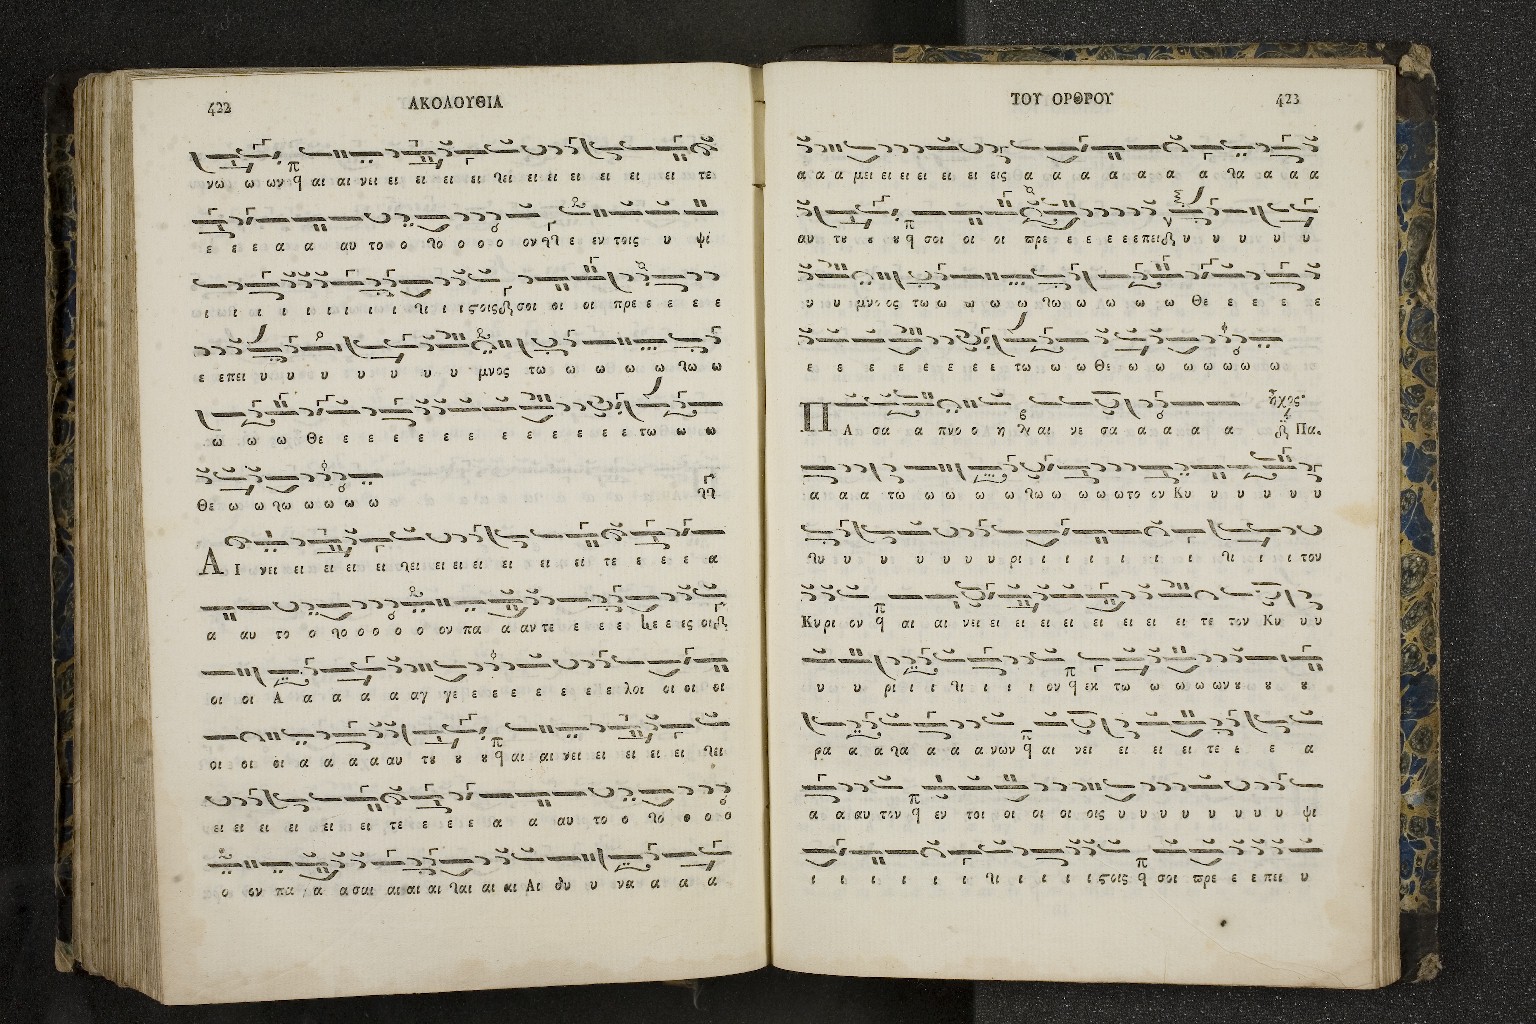 422 ΑΚΟΛΟΥΘΙΑ
νω ω ων αι αι νει ει ει ει ει ει λει ει ει ει ει ει ει τε
ε ε ε α α αυ το ο λο ο ο ο ον ε εν τοις υ ψι
ι ι ι ι ι ι ι ι ι λι ι ςοις σοι οι οι πρε ε ε ε ε
ε επει υ υ υ υ υ υ υ υ μνος τω ω ω ω ω λω ω
ω ω ω Θε ε ε ε ε ε ε ε ε ε ε ε ε τω ω ω
Θε ω ω λω ω ω ω ω
ΑΙ νει ει ει ει ει λει ει ει ει ει ει ει ει τε ε ε ε α
α αυ το ο λο ο ο ο ο ον πα α αν τε ε ε ε ε ε ες οι
οι οι Α α α α α αγ γε ε ε ε ε ε ε ε λοι οι οι οι
οι οι οι α α α α αυ τυ υ υ αι αι νει ει ει ει ει ει λει
ει ει ει ει ει ει ει τε ε ε ε α α αυ το ο λο ο ο ο
ο ον πα α α ασαι αι αι αι λαι αι αι Αι δυ υ να α α α
ΤΟΥ ΟΡΘΡΟΥ 423
α α α μει ει ει ει ει ει εις α α α α α α α α λα α α α
αυ τυ υ υ σοι οι οι οι πρε ε ε ε ε ε επει υ υ υ υ υ υ
υ υ μνο ος τω ω ω ω ω λω ω ω ω ω Θε ε ε ε ε
ε ε ε ε ε ε ε ε τω ω ω Θε ω ω ω ω ω ω ω
ΠΑ σα α πνο ο η αι νε σα α α α α ἦχος Πα.
α α α τω ω ω ω ω λω ω ω ω ω το ον Κυ υ υ υ υ υ
λυ υ υ υ υ υ υ υ ρι ι ι ι ι ι ι ι λι ι ι ι τον
Κυ ρι ον αι αι νει ει ει ει ει ει ει ει ει τε τον Κυ υ υ
υ υ ρι ι ι λι ι ι ι ον εκ τω ω ω ω ων υ υ υ
ρα α α λα α α α νων αι νει ει ει ει τε ε ε α
α α αυ τον εν τοι οι οι οι οις υ υ υ υ υ υ υ ψι
ι ι ι ι ι ι λι ι ι ι ι ςοις σοι πρε ε ε πει υ